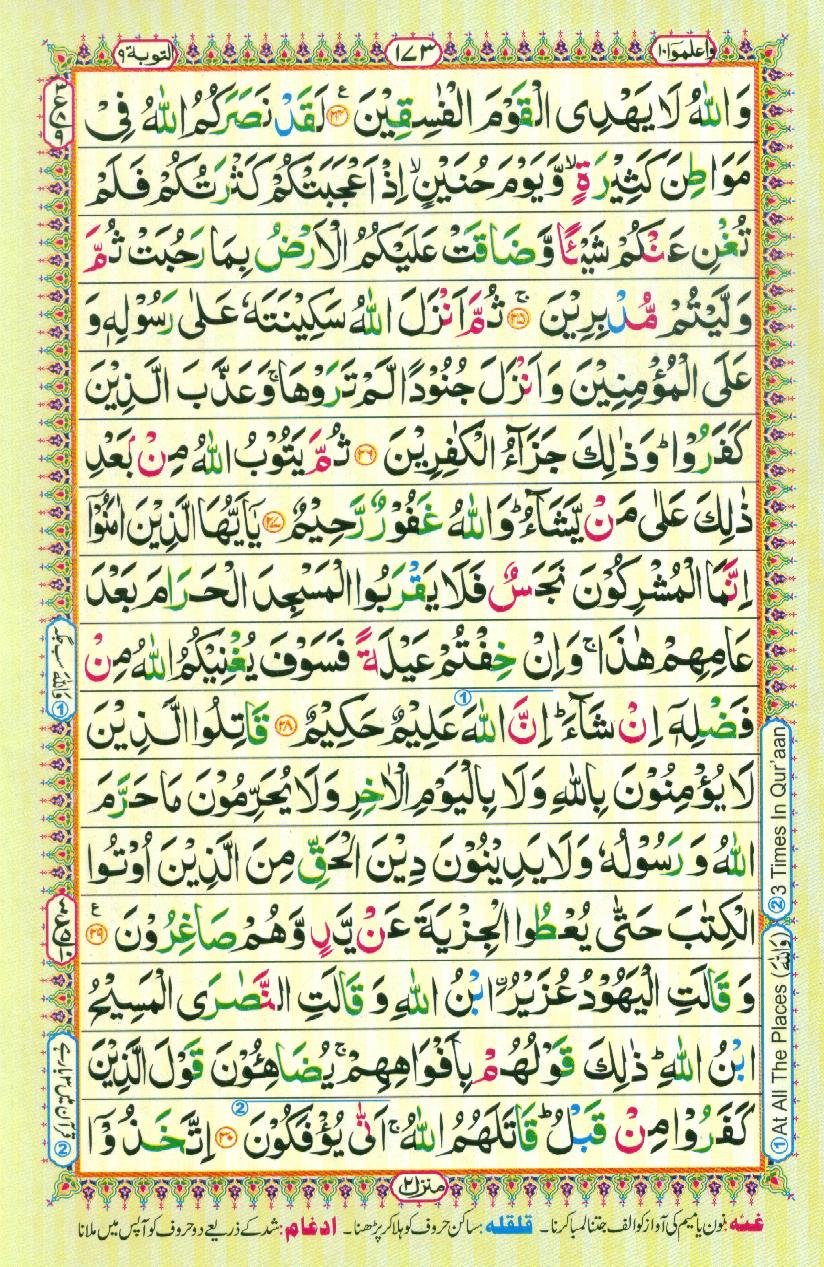 التوبة ٩
١٧٣
واعلموا ١٠
وَاللّٰهُ لَا يَهْدِى الْقَوْمَ الْفٰسِقِيْنَ ۝٢٤ لَقَدْ نَصَرَكُمُ اللّٰهُ فِىْ
مَوَاطِنَ كَثِيْرَةٍ ۙ وَّيَوْمَ حُنَيْنٍ ۙ اِذْ اَعْجَبَتْكُمْ كَثْرَتُكُمْ فَلَمْ
تُغْنِ عَنْكُمْ شَيْئًا وَّضَاقَتْ عَلَيْكُمُ الْاَرْضُ بِمَا رَحُبَتْ ثُمَّ
وَلَّيْتُمْ مُّدْبِرِيْنَ ۝٢٥ۚ ثُمَّ اَنْزَلَ اللّٰهُ سَكِيْنَتَهٗ عَلٰى رَسُوْلِهٖ وَ
عَلَى الْمُؤْمِنِيْنَ وَاَنْزَلَ جُنُوْدًا لَّمْ تَرَوْهَا ۚ وَعَذَّبَ الَّذِيْنَ
كَفَرُوْا ؕ وَذٰلِكَ جَزَآءُ الْكٰفِرِيْنَ ۝٢٦ ثُمَّ يَتُوْبُ اللّٰهُ مِنْۢ بَعْدِ
ذٰلِكَ عَلٰى مَنْ يَّشَآءُ ؕ وَاللّٰهُ غَفُوْرٌ رَّحِيْمٌ ۝٢٧ يٰۤاَيُّهَا الَّذِيْنَ اٰمَنُوْۤا
اِنَّمَا الْمُشْرِكُوْنَ نَجَسٌ فَلَا يَقْرَبُوا الْمَسْجِدَ الْحَرَامَ بَعْدَ
عَامِهِمْ هٰذَا ۚ وَاِنْ خِفْتُمْ عَيْلَةً فَسَوْفَ يُغْنِيْكُمُ اللّٰهُ مِنْ
فَضْلِهٖۤ اِنْ شَآءَ ؕ اِنَّ اللّٰهَ عَلِيْمٌ حَكِيْمٌ ۝٢٨ قَاتِلُوا الَّذِيْنَ
لَا يُؤْمِنُوْنَ بِاللّٰهِ وَلَا بِالْيَوْمِ الْاٰخِرِ وَلَا يُحَرِّمُوْنَ مَا حَرَّمَ
اللّٰهُ وَ رَسُوْلُهٗ وَلَا يَدِيْنُوْنَ دِيْنَ الْحَقِّ مِنَ الَّذِيْنَ اُوْتُوا
الْكِتٰبَ حَتّٰى يُعْطُوا الْجِزْيَةَ عَنْ يَّدٍ وَّهُمْ صَاغِرُوْنَ ۝٢٩
وَ قَالَتِ الْيَهُوْدُ عُزَيْرُ ۨابْنُ اللّٰهِ وَ قَالَتِ النَّصٰرَى الْمَسِيْحُ
ابْنُ اللّٰهِ ؕ ذٰلِكَ قَوْلُهُمْ بِاَفْوَاهِهِمْ ۚ يُضَاهِـُٔوْنَ قَوْلَ الَّذِيْنَ
كَفَرُوْا مِنْ قَبْلُ ؕ قَاتَلَهُمُ اللّٰهُ ۚ اَنّٰى يُؤْفَكُوْنَ ۝٣٠ اِتَّخَذُوْۤا
① At All The Places (وَاللّٰهُ) ② 3 Times In Qur'aan
منزل ٢
غنه: نون یا میم کی آواز کو الف جتنا لمبا کرنا۔ قلقله: ساکن حروف کو ہلا کر پڑھنا۔ ادغام: شد کے ذریعے دو حروف کو آپس میں ملانا